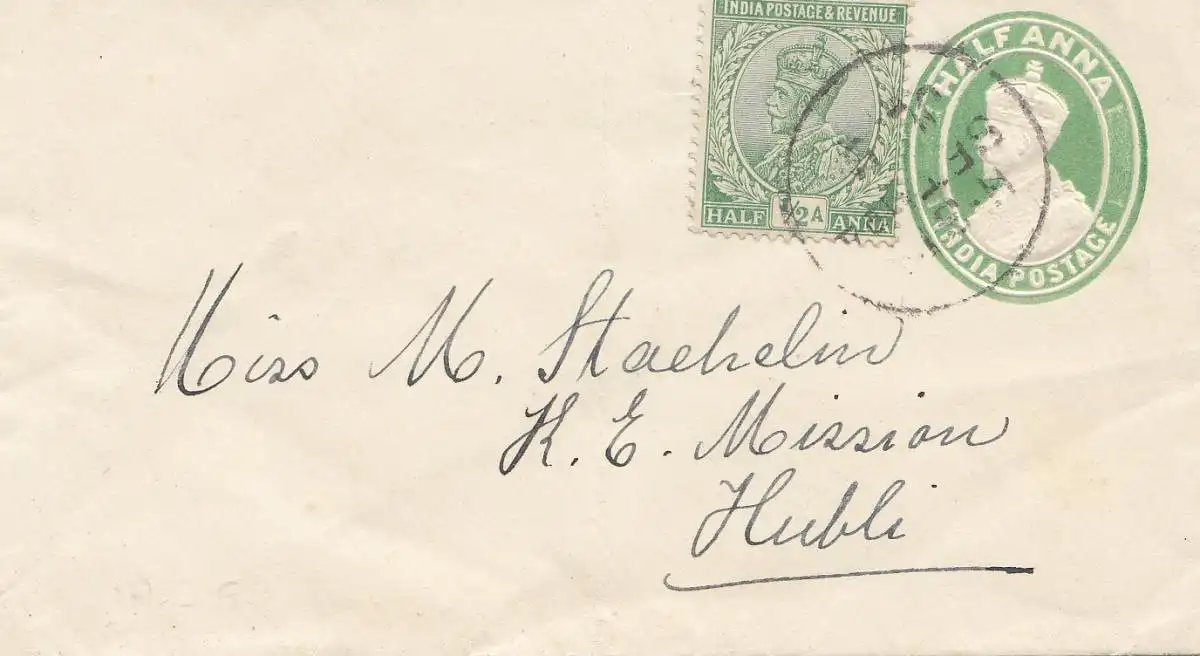 INDIA POSTAGE & REVENUE
HALF ½A ANNA
HALF ANNA
INDIA POSTAGE
Miss M. Staehelin
K. E. Mission
Hubli